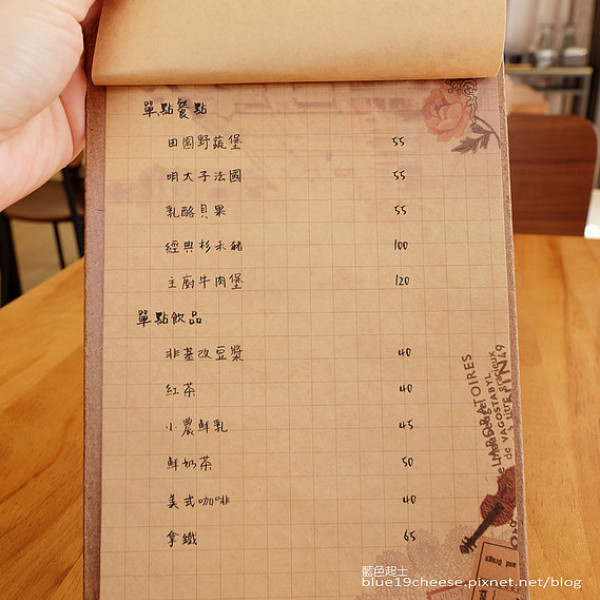 單點餐點
田園野蔬堡 55
明太子法國 55
乳酪貝果 55
經典杉禾豬 100
主廚牛肉堡 120
單點飲品
非基改豆漿 40
紅茶 40
小農鮮乳 45
鮮奶茶 50
美式咖啡 40
拿鐵 65
藍色起士
blue19cheese.pixnet.net/blog